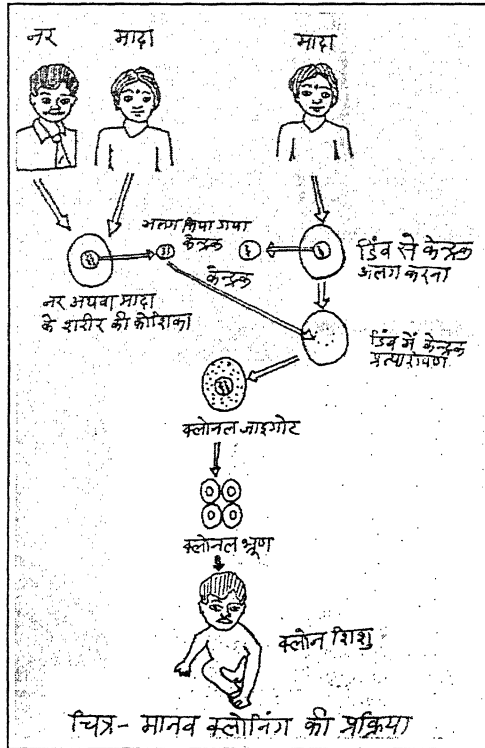 नर
मादा
मादा
अलग किया गया
केन्द्रक
केन्द्रक
डिंब से केन्द्रक
अलग करना
नर अथवा मादा
के शरीर की कोशिका
डिंब में केन्द्रक
प्रत्यारोपण
क्लोनल जाइगोट
क्लोनल भ्रूण
क्लोन शिशु
चित्र- मानव क्लोनिंग की प्रक्रिया